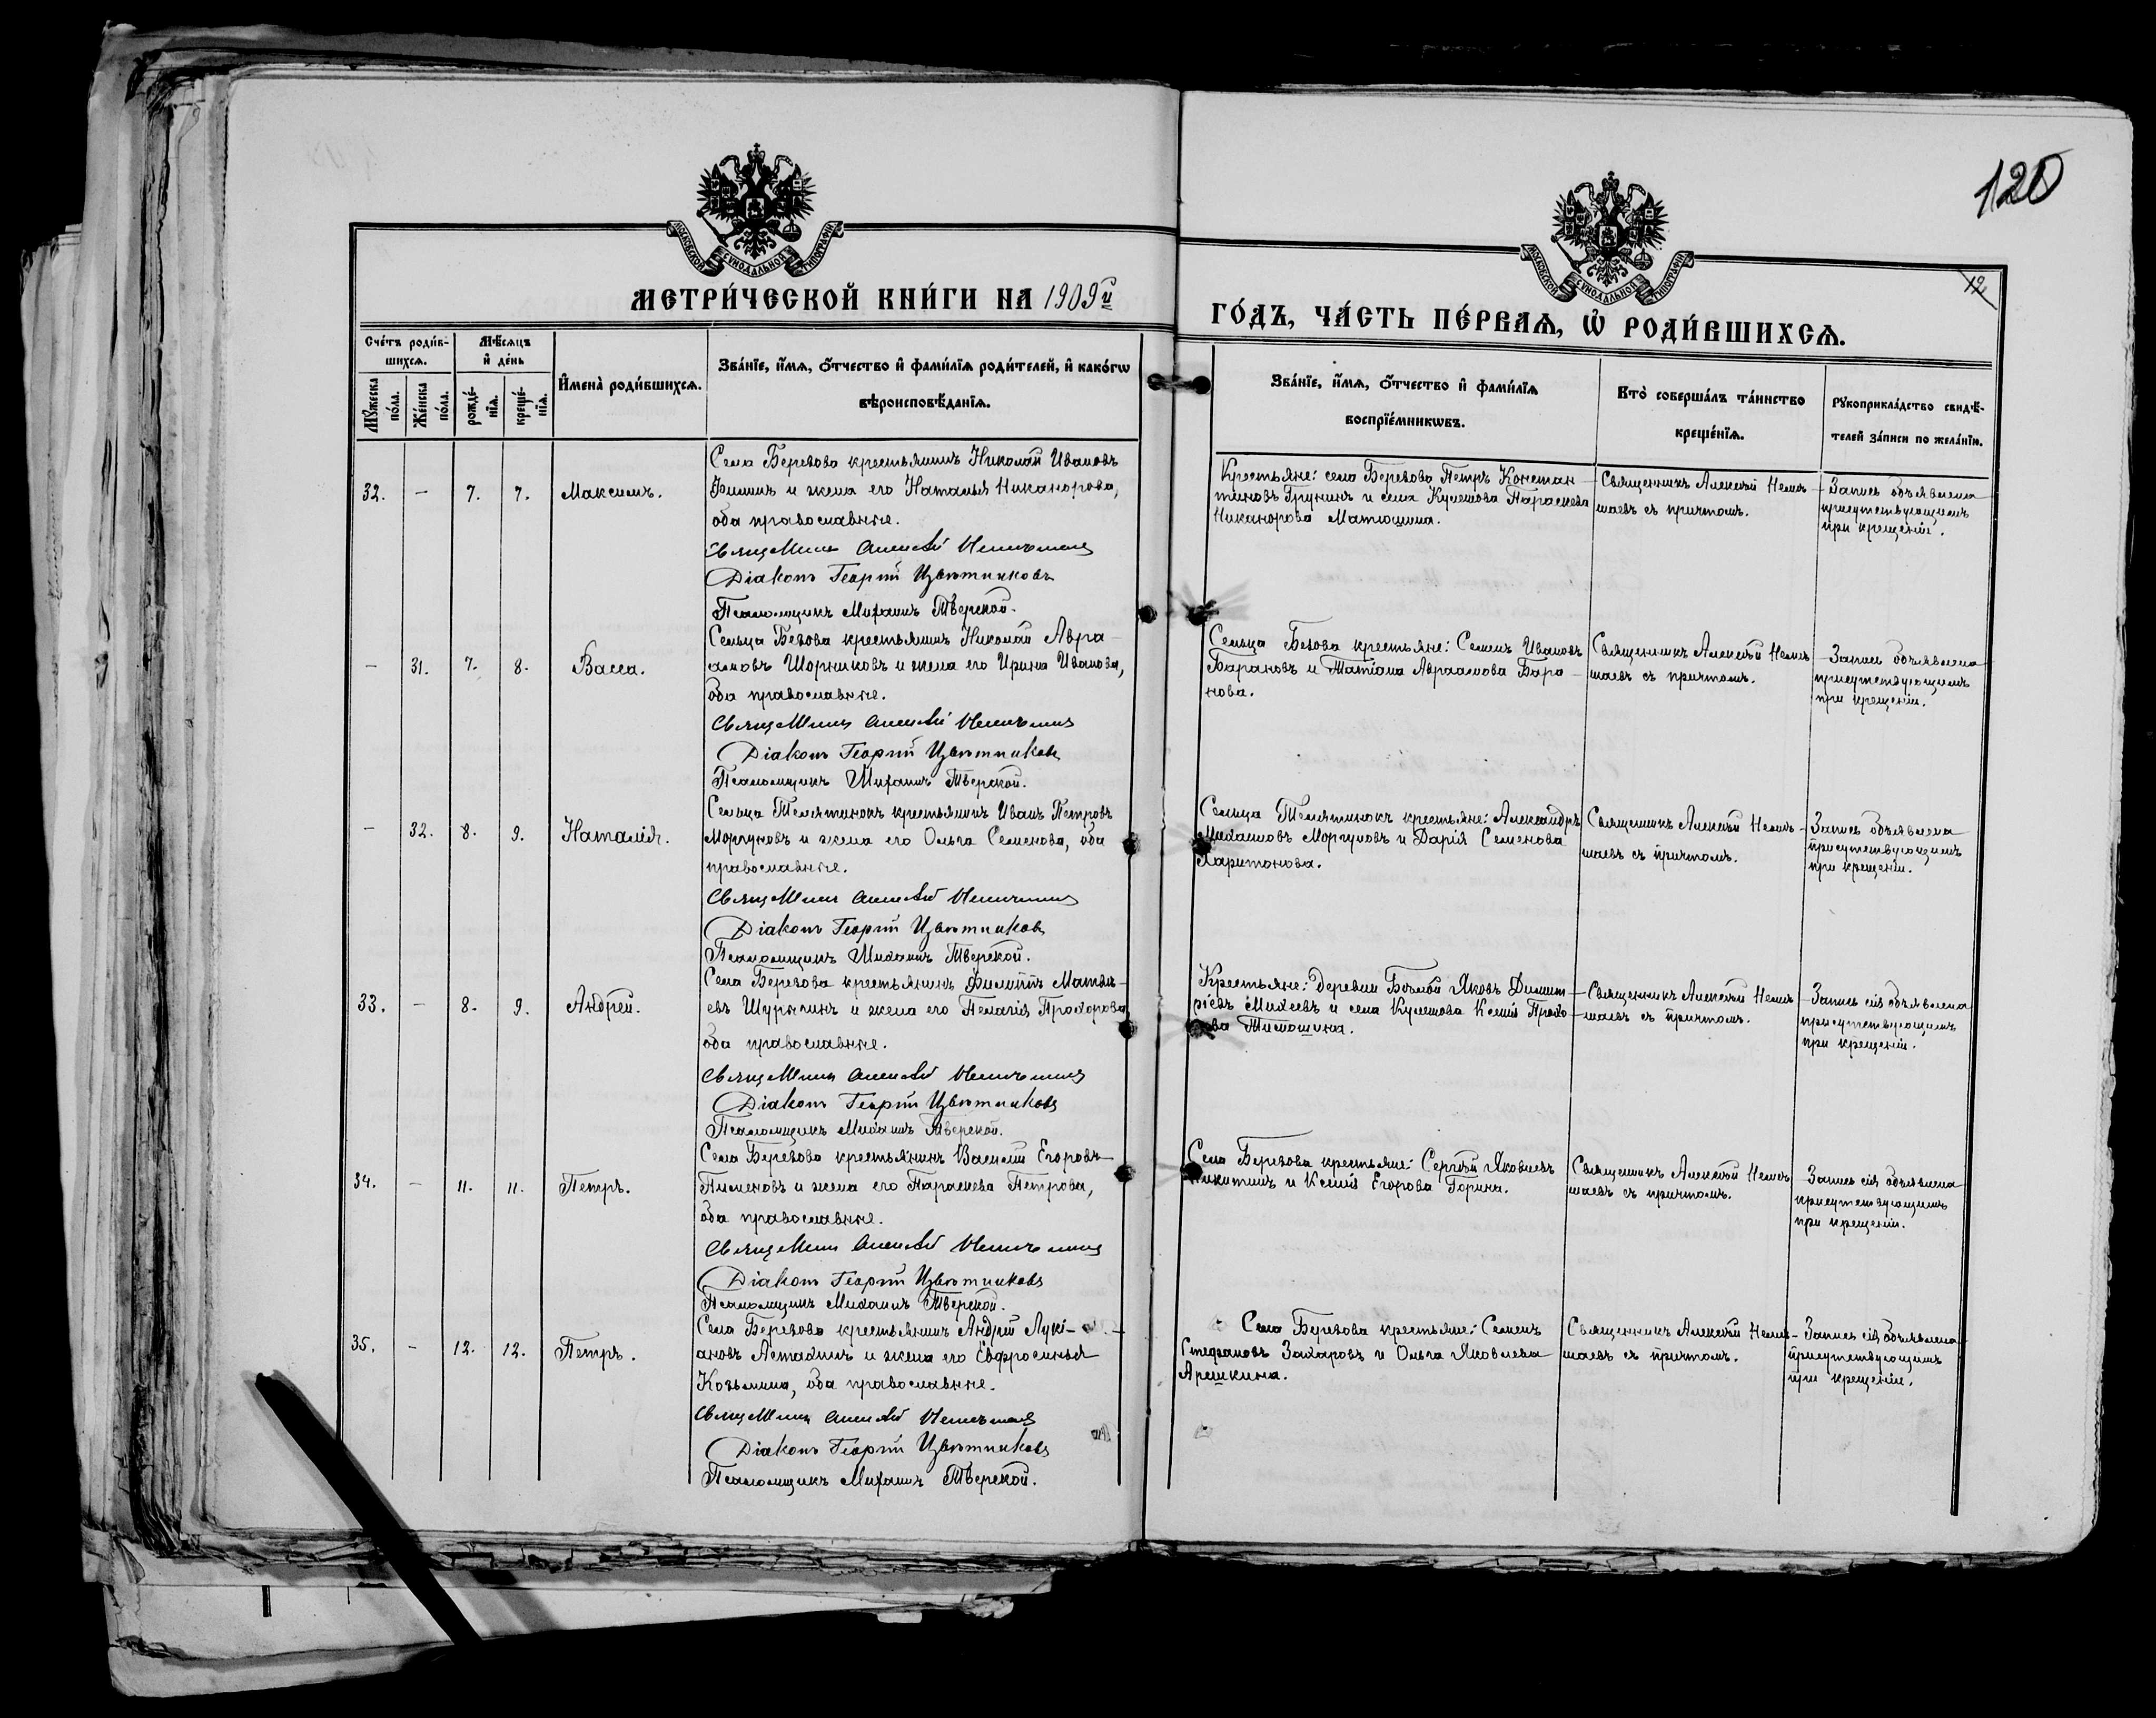 120
12
МОСКОВСКОЙ СѴНОДАЛЬНОЙ ТИПОГРАФІИ
МОСКОВСКОЙ СѴНОДАЛЬНОЙ ТИПОГРАФІИ
МЕТРИ́ЧЕСКОЙ КНИ́ГИ НА 1909й ГО́ДЪ, ЧА́СТЬ ПЕ́РВАѦ, Ѡ҆ РОДИ́ВШИХСѦ.
Сче́тъ роди́в-
шихсѧ.
Мꙋ́жеска по́ла.
Же́нска по́ла.
Мѣ́сяцъ
и҆ де́нь
рожде́-
нїѧ.
креще́-
нїѧ.
И҆мена̀ роди́вшихсѧ.
Зва́нїе, и҆́мѧ, ѻ҆́тчество и҆ фами́лїѧ роди́телей, и҆ како́гѡ
вѣроисповѣ́данїѧ.
Зва́нїе, и҆́мѧ, ѻ҆́тчество и҆ фами́лїѧ
воспрїе́мникѡвъ.
Кто̀ соверша́лъ та́инство
креще́нїѧ.
Рꙋкоприкла́дство свидѣ́-
телей за́писи по жела́нїю.
32. — 7. 7. Максимъ.
Села Березова крестьянинъ Николай Ивановъ
Филинъ и жена его Наталья Никанорова,
оба православные.
Священникъ Алексѣй
Діаконъ Георгій Цвѣтниковъ
Псаломщикъ Михаилъ Тверской.
Крестьяне: села Березова Петръ Констан-
тиновъ Грунинъ и села Кулешова Параскева
Никанорова Матюшина.
Священникъ Алексѣй Немѣ-
шаевъ съ причтомъ.
Запись объявлена
присутствующимъ
при крещеніи.
— 31. 7. 8. Васса.
Сельца Безова крестьянинъ Николай Авра-
амовъ Шорниковъ и жена его Ирина Иванова,
оба православные.
Священникъ Алексѣй
Діаконъ Георгій Цвѣтниковъ
Псаломщикъ Михаилъ Тверской.
Сельца Безова крестьяне: Семенъ Ивановъ
Барановъ и Татіана Авраамова Бара-
нова.
Священникъ Алексѣй Немѣ-
шаевъ съ причтомъ.
Запись объявлена
присутствующимъ
при крещеніи.
— 32. 8. 9. Наталія.
Сельца Телятинокъ крестьянинъ Иванъ Петровъ
Моргуновъ и жена его Ольга Семенова, оба
православные.
Священникъ Алексѣй
Діаконъ Георгій Цвѣтниковъ
Псаломщикъ Михаилъ Тверской.
Сельца Телятинокъ крестьяне: Александръ
Михаиловъ Моргуновъ и Дарія Семенова
Харитонова.
Священникъ Алексѣй Немѣ-
шаевъ съ причтомъ.
Запись объявлена
присутствующимъ
при крещеніи.
33. — 8. 9. Андрей.
Села Березова крестьянинъ Филиппъ Матвѣ-
евъ Шурыгинъ и жена его Пелагія Прохорова
оба православные.
Священникъ Алексѣй
Діаконъ Георгій Цвѣтниковъ
Псаломщикъ Михаилъ Тверской.
Крестьяне: деревни Яковъ Димит-
ріевъ Михеевъ и села Кулешова Ксенія Прохо-
рова Тимошина.
Священникъ Алексѣй Немѣ-
шаевъ съ причтомъ.
Запись сія объявлена
присутствующимъ
при крещеніи.
34. — 11. 11. Петръ.
Села Березова крестьянинъ Василій Егоровъ
Пименовъ и жена его Параскева Петрова,
оба православные.
Священникъ Алексѣй
Діаконъ Георгій Цвѣтниковъ
Псаломщикъ Михаилъ Тверской.
Села Березова крестьяне: Сергѣй Яковлевъ
Никитинъ и Ксенія Егорова Горина.
Священникъ Алексѣй Немѣ-
шаевъ съ причтомъ.
Запись сія объявлена
присутствующимъ
при крещеніи.
35. — 12. 12. Петръ.
Села Березова крестьянинъ Андрей Лукі-
ановъ Астахинъ и жена его Евфросинья
Козьмина, оба православные.
Священникъ Алексѣй
Діаконъ Георгій Цвѣтниковъ
Псаломщикъ Михаилъ Тверской.
Села Березова крестьяне: Семенъ
Стефановъ Захаровъ и Ольга Яковлева
Арешкина.
Священникъ Алексѣй Немѣ-
шаевъ съ причтомъ.
Запись сія объявлена
присутствующимъ
при крещеніи.